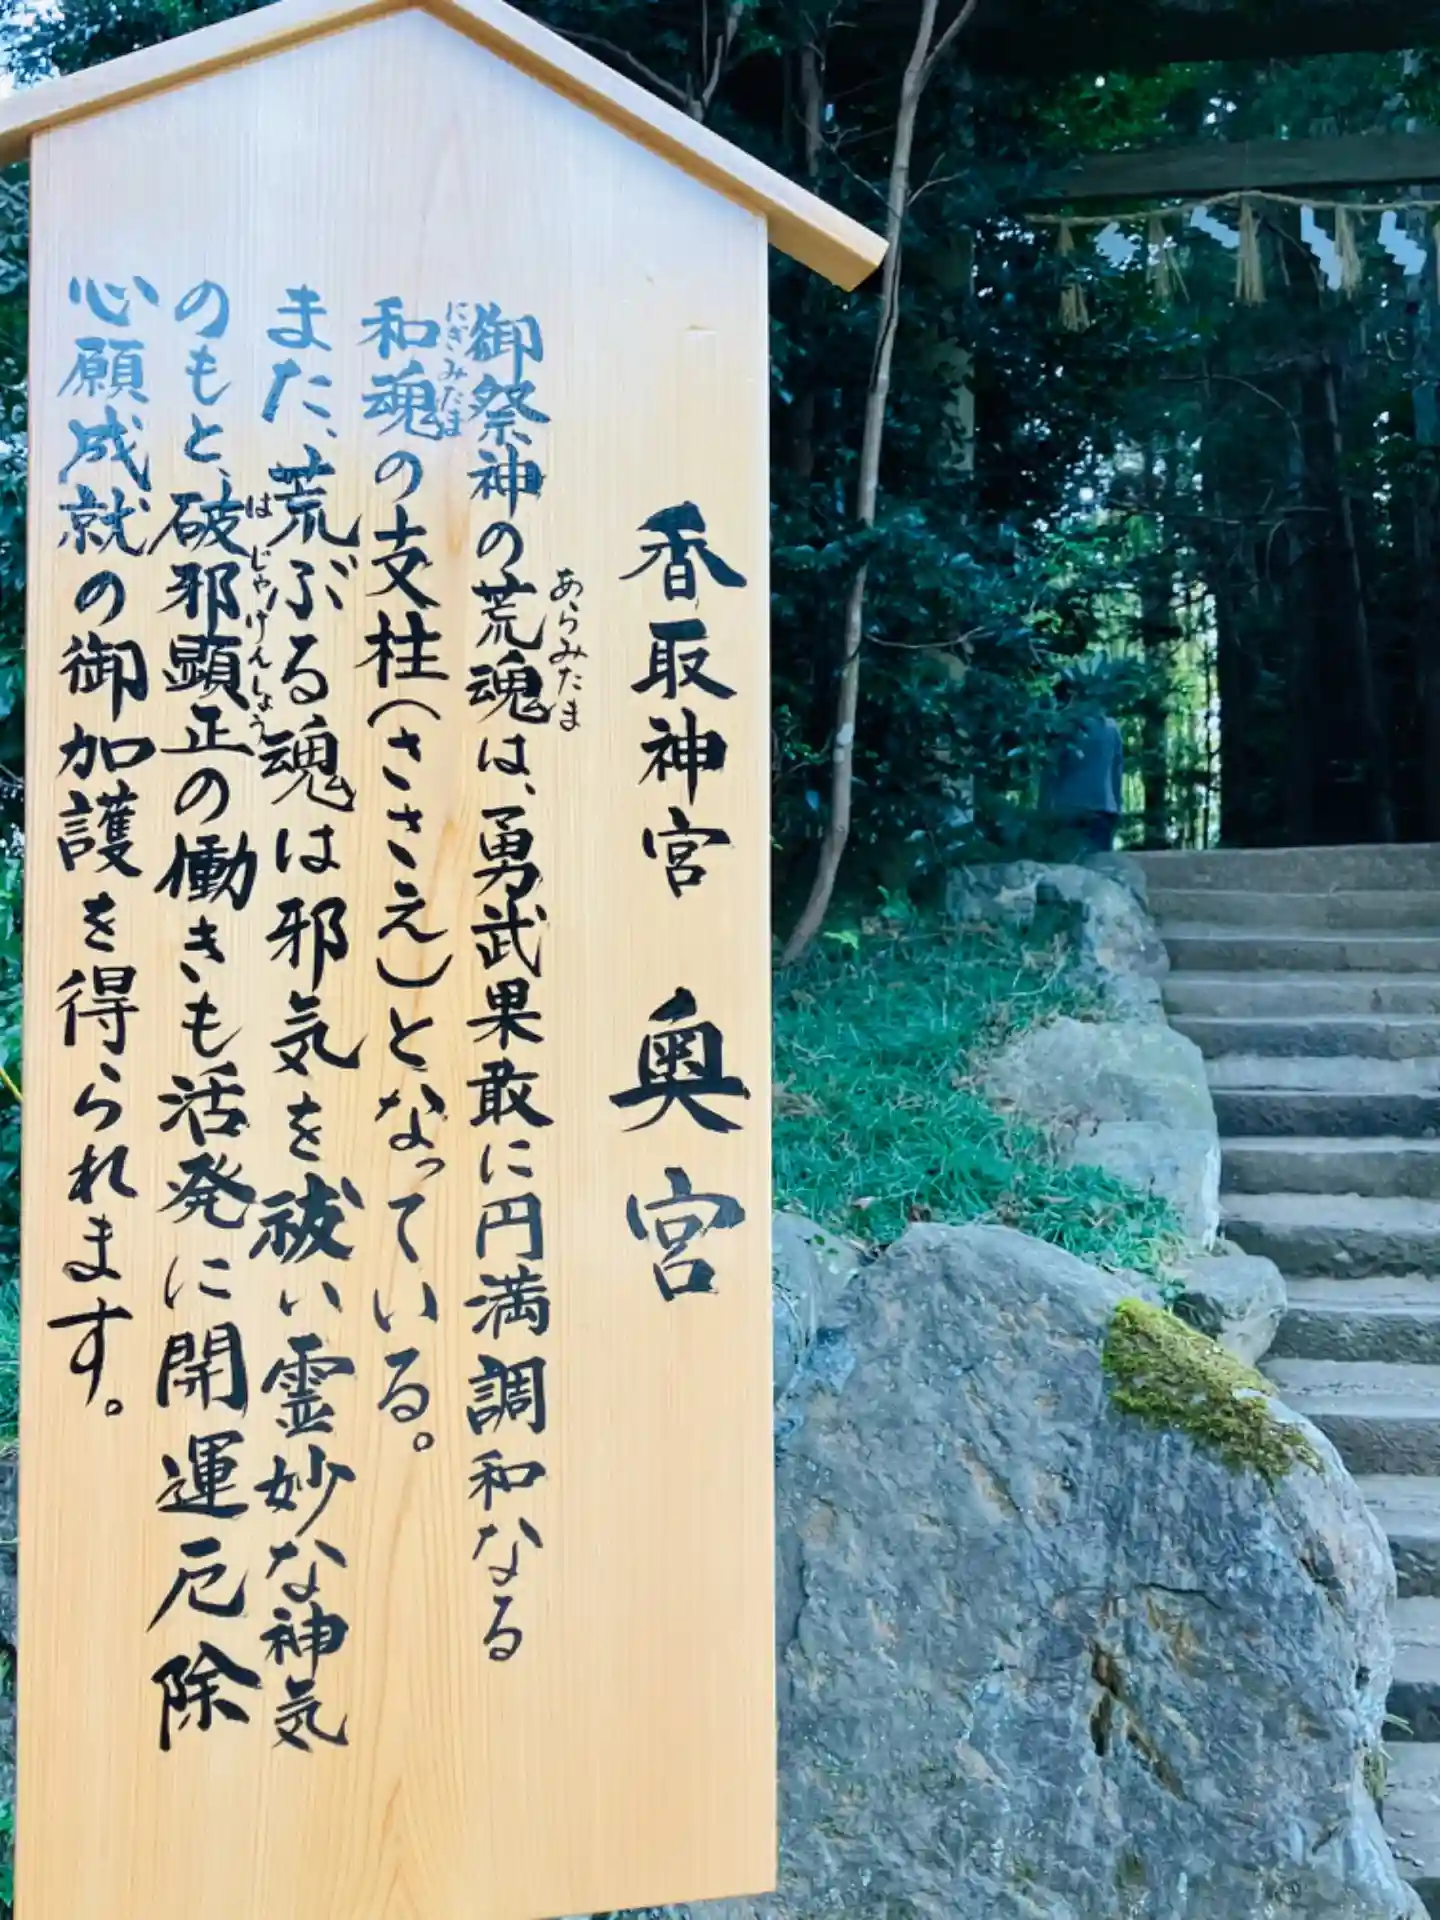 香取神宮 奥宮
御祭神の荒魂は、勇武果敢に円満調和なる
あらみたま
和魂の支柱(ささえ)となっている。
にぎみたま
また、荒ぶる魂は邪気を祓い霊妙な神気
のもと、破邪顕正の働きも活発に開運厄除
はじゃけんしょう
心願成就の御加護を得られます。